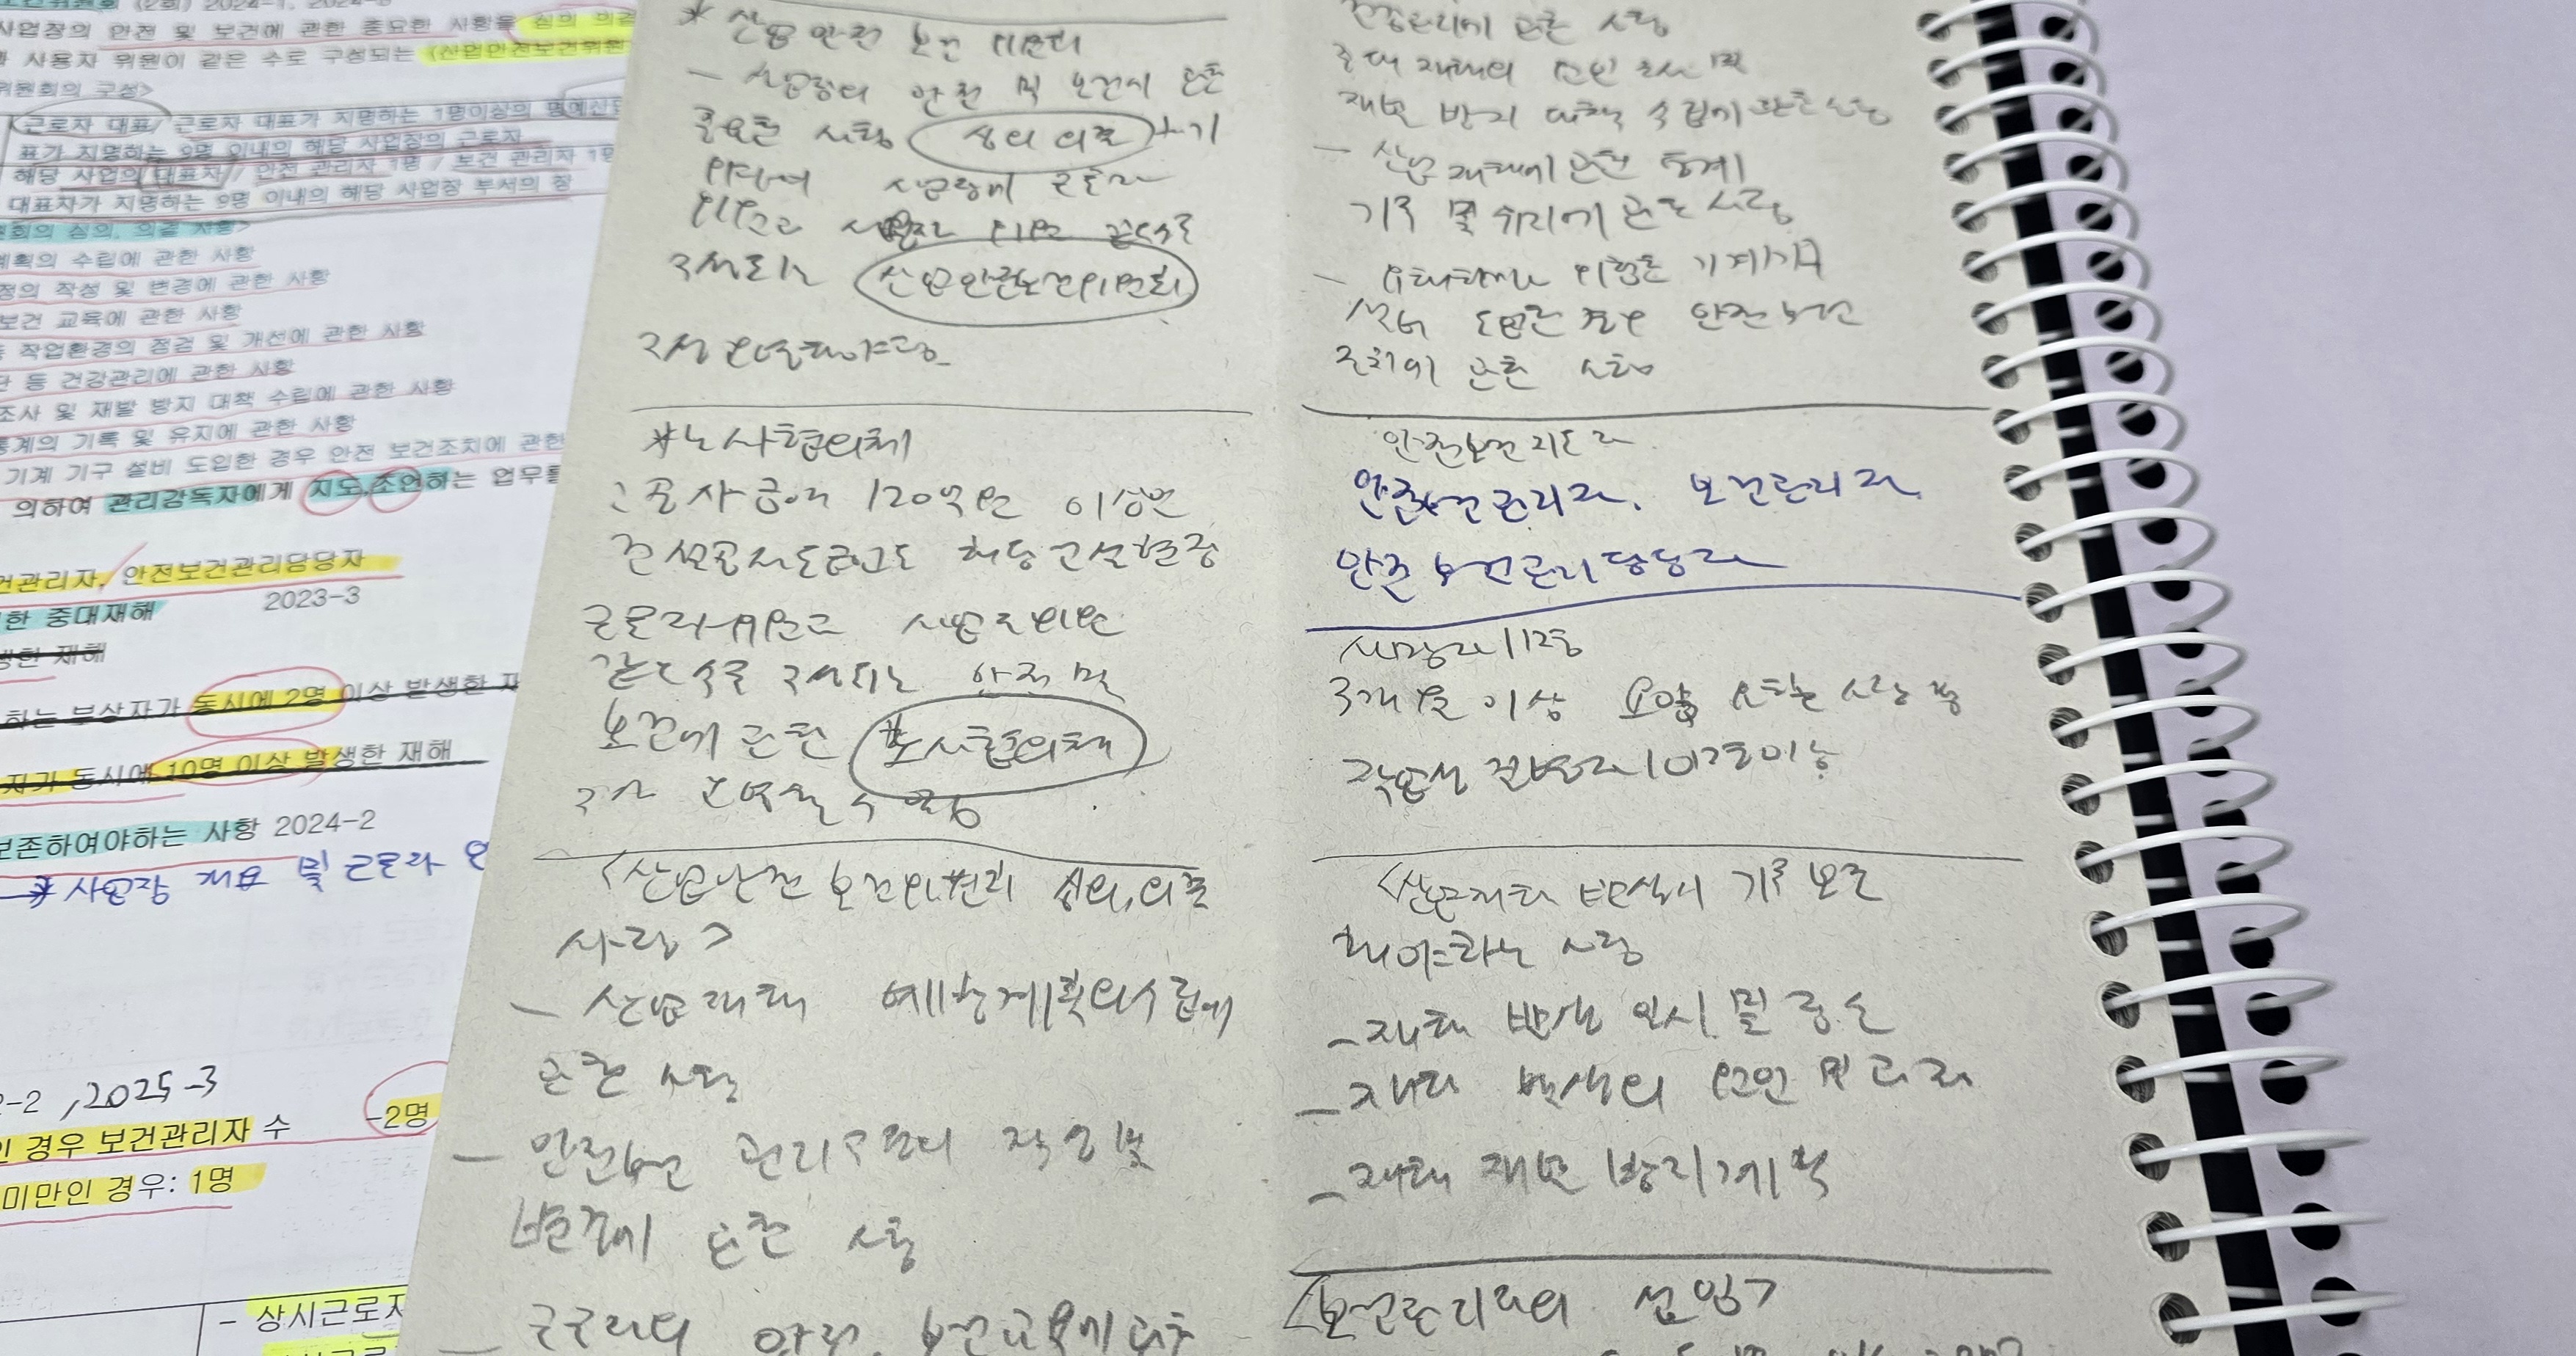 (2회) 2024-1, 2024-
사업장의 안전 및 보건에 관한 중요한 사항을 심의 의결
사용자 위원이 같은 수로 구성되는 (산업안전보건위원
위원회의 구성>
근로자 대표/ 근로자 대표가 지명하는 1명이상의 명예산업
표가 지명하는 9명 이내의 해당 사업장의 근로자
해당 사업의 대표자/ 안전 관리자 1명 / 보건 관리자 1명
대표자가 지명하는 9명 이내의 해당 사업장 부서의 장
회의 심의, 의결 사항>
계획의 수립에 관한 사항
정의 작성 및 변경에 관한 사항
보건 교육에 관한 사항
작업환경의 점검 및 개선에 관한 사항
단 등 건강관리에 관한 사항
조사 및 재발 방지 대책 수립에 관한 사항
통계의 기록 및 유지에 관한 사항
기계 기구 설비 도입한 경우 안전 보건조치에 관한
의하여 관리감독자에게 지도,조언하는 업무를
건관리자, 안전보건관리담당자
2023-3
한 중대재해
생한 재해
하는 부상자가 동시에 2명 이상 발생한 재
자가 동시에 10명 이상 발생한 재해
보존하여야하는 사항 2024-2
* 사업장 개요 및 근로자 인
2-2 ,2025-3
인 경우 보건관리자 수 -2명
미만인 경우: 1명
- 상시근로자
* 산업안전 보건 위원회
- 사업장의 안전 및 보건에 관한
중요한 사항 심의 의결 하기
위하여 사업장에 근로자
위원과 사용자 위원 같은수로
구성되는 산업안전보건위원회
구성 운영해야함
*노사협의체
공사금액 120억원 이상인
건설공사도급인은 해당 건설현장
근로자위원과 사용자위원
같은 수로 구성되는 안전 및
보건에 관한 노사협의체
구성 운영할 수 있음
<산업안전 보건위원회 심의, 의결
사항>
- 산업재해 예방계획의수립에
관한 사항
- 안전보건 관리규정의 작성 및
변경에 관한 사항
- 근로자의 안전, 보건교육에 관한
건강관리에 관한 사항
중대 재해의 원인 조사 및
재발 방지 대책 수립에 관한 사항
- 산업 재해에 관한 통계
기록 및 유지에 관한 사항
- 유해하거나 위험한 기계기구
설비 도입한 경우 안전 보건
조치에 관한 사항
안전보건 지도
안전보건관리자, 보건관리자,
안전보건관리담당자
사망자 1명
3개월 이상 요양 요하는
<산업재해 발생시 기록 보존
해야하는 사항
- 재해 발생 일시 및 장소
- 재해 발생의 원인 및 과정
- 재해 재발 방지계획
<보건관리자의 선임>